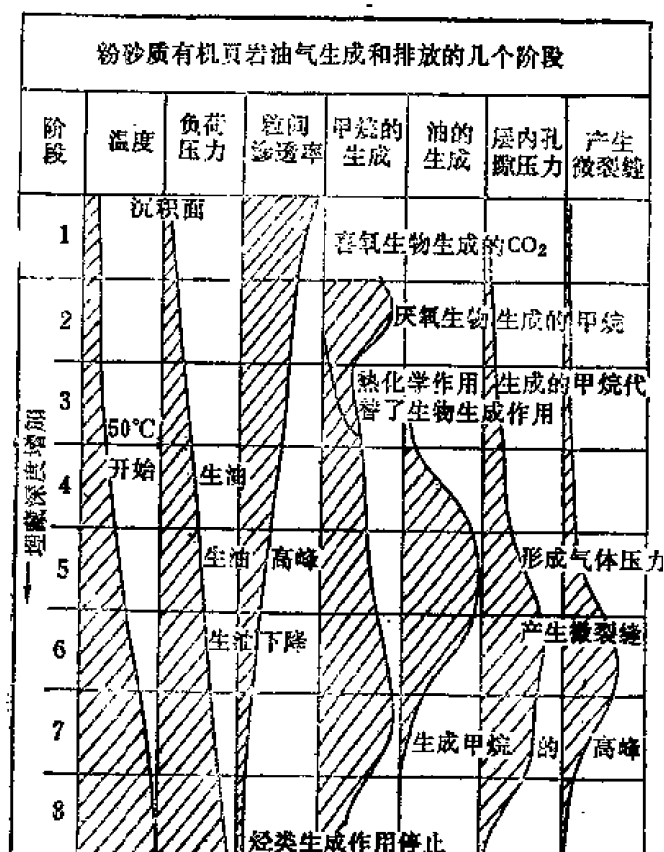 粉砂质有机页岩油气生成和排放的几个阶段
阶段
温度
负荷压力
粒间渗透率
甲烷的生成
油的生成
层内孔隙压力
产生微裂缝
沉积面
1
喜氧生物生成的CO₂
2
厌氧生物生成的甲烷
3
热化学作用生成的甲烷代
替了生物生成作用
50℃
开始生油
4
生油高峰
5
形成气体压力
生油下降
6
产生微裂缝
7
生成甲烷的高峰
8
烃类生成作用停止
埋藏深度增加